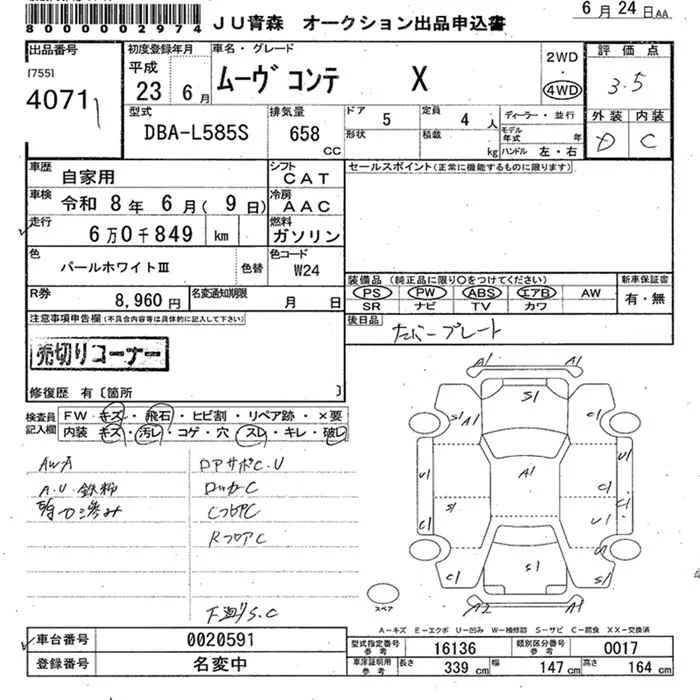 6月24日AA
8000002974 JU青森 オークション出品申込書
出品番号 [755] 4071
初度登録年月 平成 23 6月
車名・グレード ムーヴ コンテ X
2WD・4WD
評価点 3.5
外装 D 内装 C
型式 DBA-L585S
排気量 658 CC
ドア 5
形状
定員 4 人
積載 kg
ディーラー・並行
モデル年式 年
ハンドル 左・右
車歴 自家用
シフト CAT
車検 令和 8年 6月( 9日)
冷房 AAC
走行 6万0千849 km
燃料 ガソリン
色 パールホワイトⅢ 色替
色コード W24
R券 8,960円
名変通知期限 月 日
セールスポイント(正常に機能するものに限ります)
装備品(純正品に限り○をつけてください)
PS PW ABS エアB AW
SR ナビ TV カワ
新車保証書 有・無
後日品 ナンバープレート
注意事項申告欄(不具合内容等は具体的に記入して下さい)
売切りコーナー
修復歴 有〔箇所 〕
検査員記入欄
FW キズ・飛石・ヒビ割・リペア跡・×要
内装 キズ・汚レ・コゲ・穴・スレ・キレ・破レ
AWA
A.U.鉄粉
ドアサポC.U
ロッカーC
CフロアC
RフロアC
下廻りS.C
A1 A1
S1
S1 A1 C1
U1 A1 U1
S1 C1
C1 U1
U
C1 S1 S1
A2 A1
スペア
A-キズ E-エクボ U-凹み W-補修跡 S-サビ C-腐食 XX-交換済
車台番号 0020591
登録番号 名変中
型式指定番号 参考 16136
類別区分番号 参考 0017
車庫証明用 参考 長さ 339 cm 幅 147 cm 高さ 164 cm